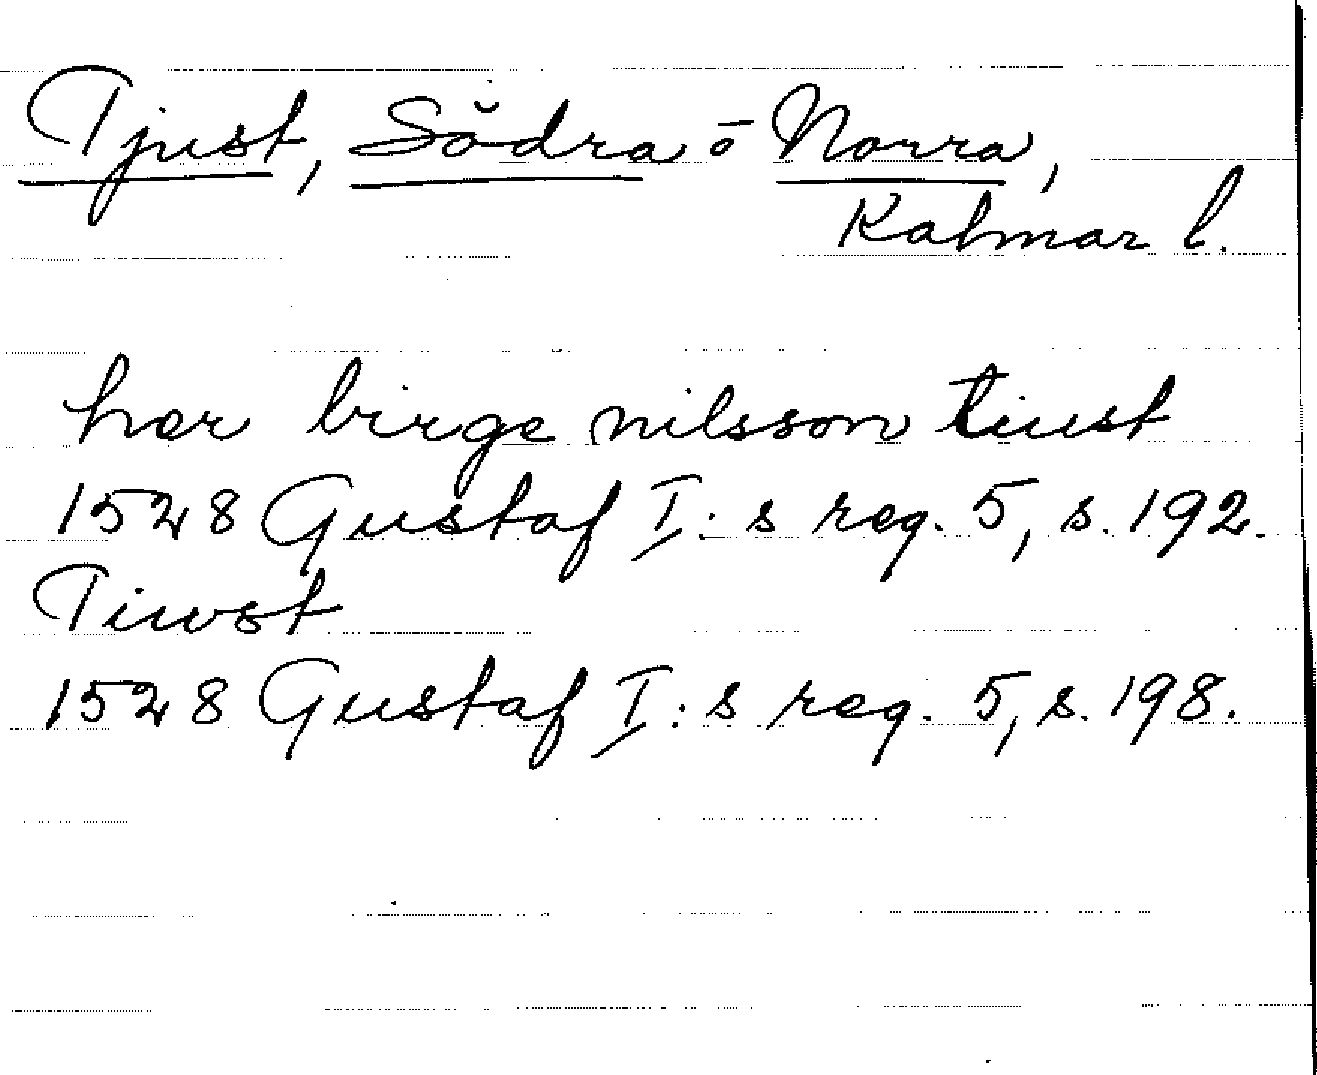 Tjust, Södra o Norra,
Kalmar l.
her birge nilsson tiust
1528 Gustaf I:s reg. 5, s. 192.
Tiwst
1528 Gustaf I:s reg. 5, s. 198.